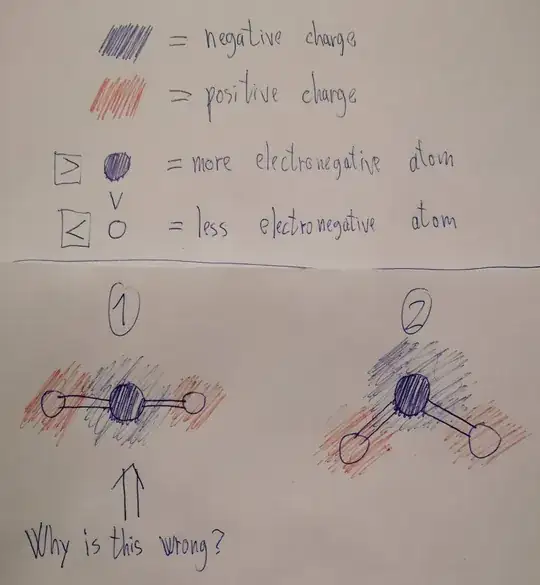 = negative charge
= positive charge
> = more electronegative atom
V
< = less electronegative atom
1
2
Why is this wrong?